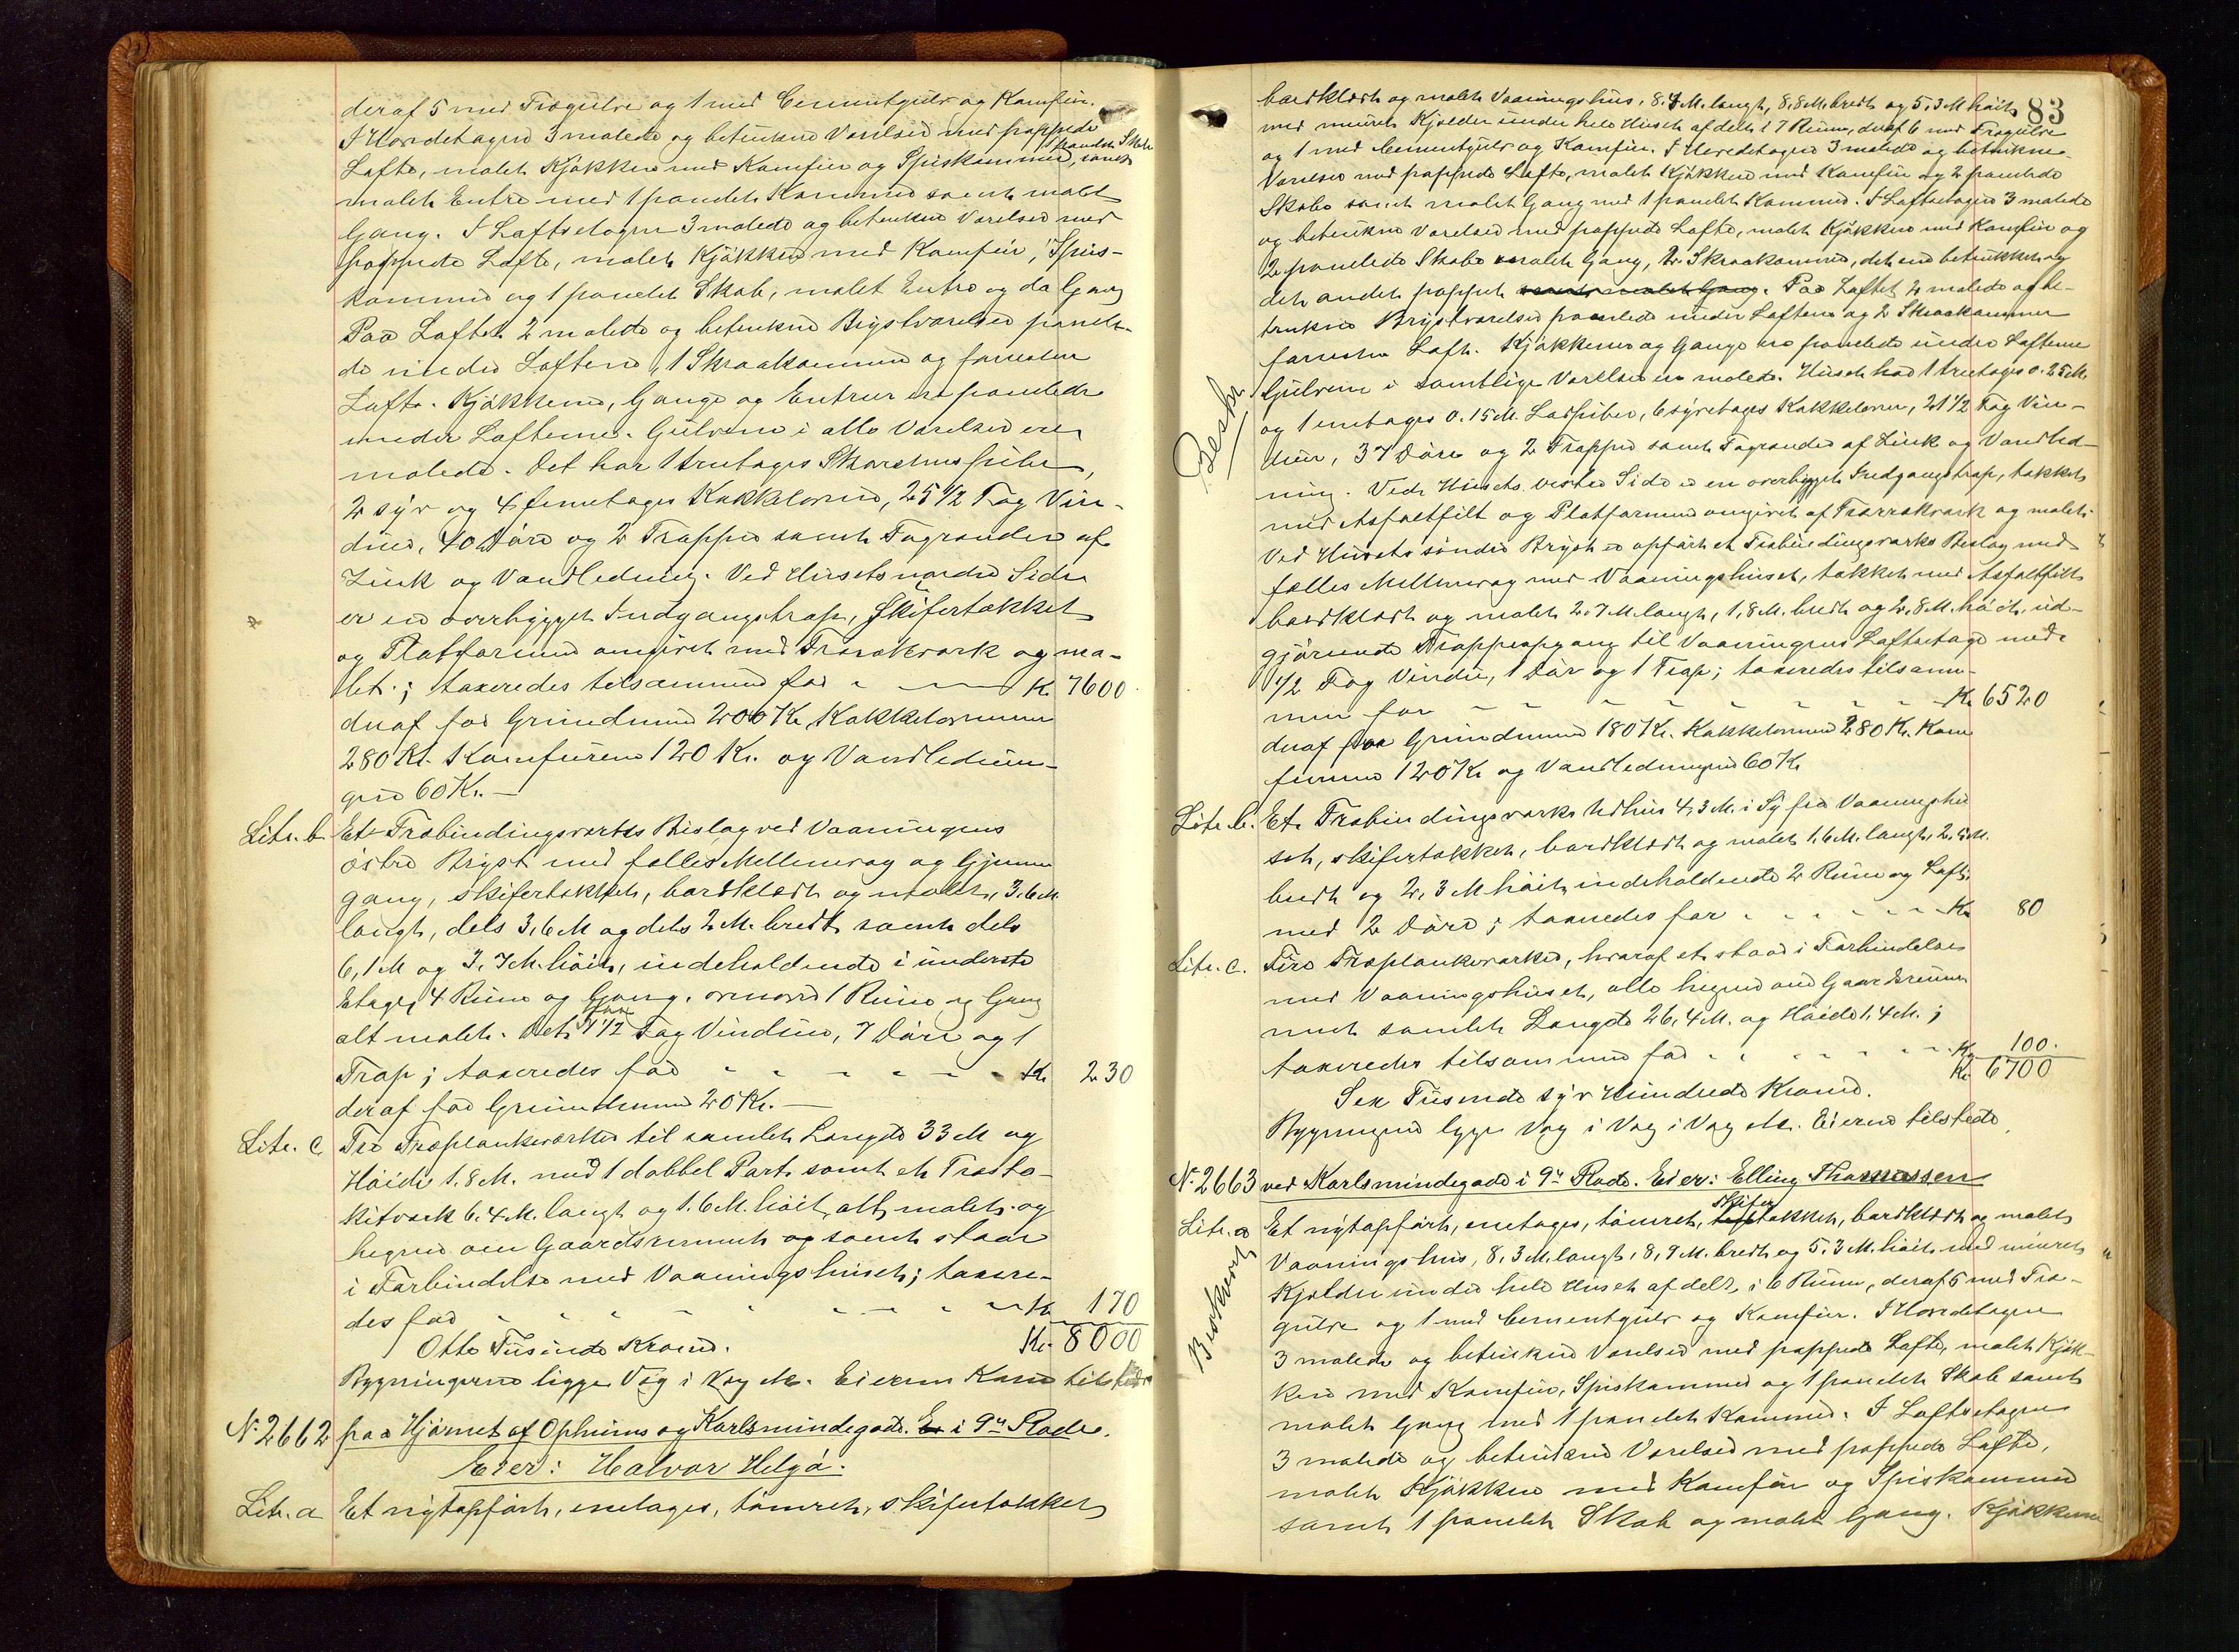 deraf 5 med Trægulve og 1 med Cementgulv og Komfur.
I Hovedetagen 3 malede og betrukne Værelser med pappede
1 panelet Skab
Lofte, malet Kjøkken med Komfur og Spiskammer, samt
malet Entre med 1 panelet Kammer samt malet
Gang. I Loftsetagen 3 malede og betrukne Værelser med
pappede Lofte, malet Kjøkken med Komfur, Spis-
kammer og 1 panelet Skab, malet Entre og do Gang
Paa Loftet 2 malede og betrukne Brystværelser panele-
de under Loftene, 1 Skraakammer og forresten
Loft. Kjøkkener, Gange og Entreer ere panelede
under Lofterne. Gulvene i alle Værelser ere
malede. Det har 1 treetages Skorstenspibe,
2 syv og 4 femetages Kakkelovne, 25 1/2 Fag Vin-
duer, 40 Døre og 2 Trapper samt Tagrender af
Zink og Vandledning. Ved Husets nordre Side
er en overbygget Indgangstrap, skifertækket
og Platformen omgivet med Træækværk og ma-
let; taxeredes tilsammen for - Kr. 7600
deraf for Grundmur 200 Kr, Kakkelovnene
280 Kr. Komfurene 120 Kr. og Vandlednin-
gen 60 Kr. —
Litr. b Et Træbindingsverks Bislag ved Vaaningens
østre Bryst med fælles Mellemvæg og Gjennem
gang, skifertækket, bordklædt og malet, 3.6 M.
langt, dels 3,6 M og dels 2 M. bredt samt dels
6,1 M og 3.7 M. høit, indeholdende i underste
Etage, 4 Rum og Gang, ovenover 1 Rum og Gang
alt malet. Det har 4 1/2 Fag Vinduer, 7 Døre og 1
Trap; taxeredes for - - - - - Kr. 230
deraf for Grundmur 20 Kr. —
Litr. c Tre Træplankeværker til samlet Længde 33 M og
Høide 1.8 M. med 1 dobbel Port samt et Træsta-
kitværk 6.4 M. langt og 1.6 M. høit, alt malet og
hegner om Gaardsrummet og samt staar
i Forbindelse med Vaaningshuset; taxere-
des for - - - - - - - Kr. 170
Otte Tusinde Kroner. Kr. 8000
Bygningerne ligge Væg i Væg etc. Eieren Kone tilstede
No 2662 paa Hjørnet af Ophuus og Karlsmindegade. E i 9de Rode.
Eier: Halvor Helgø.
Litr. a Et nytopført, enetages, tømret, skifertækket
83
bordklædt og malet Vaaningshus, 8.7 M. langt, 8,8 M. bredt og 5,3 M høit
med muret Kjælder under hele Huset afdelt i 7 Rum, deraf 6 med Trægulve
og 1 med Cementgulv og Komfur. I Hovedetagen 3 malede og betrukne
Værelser med pappede Lofte, malet Kjøkken med Komfur og 2 panelede
Skabe samt malet Gang med 1 panelet Kammer. I Loftsetagen 3 malede
og betrukne Værelser med pappede Lofte, malet Kjøkken med Komfur og
2 panelede Skabe malet Gang, 2 Skraakammer, det ene betrukket og
det andet pappet samt malet Gang. Paa Loftet 2 malede og be-
trukne Brystværelser panelede under Loftene og 2 Skraakammer
forresten Loft. Kjøkkener og Gange ere panelede under Lofterne
Gulvene i samtlige Værelser ere malede. Huset har 1 treetages 0.25 M.
Beskr.
og 1 enetages 0.15 M. Løspiber, 6 syvetages Kakkelovne, 21 1/2 Fag Vin-
duer, 37 Døre og 2 Trapper samt Tagrender af Zink og Vandled-
ning. Ved Husets vestre Side er en overbygget Indgangstrap, tækket
med Asfaltfilt og Platformen omgivet af Træræekværk og malet.
Ved Husets søndre Bryst er opført et Træbindingsværks Bislag med
fælles Mellemvæg med Vaaningshuset, tækket med Asfaltfilt
bordklædt og malet 2.7 M. langt, 1,8 M. bredt og 2,8 M. høit, ud-
gjørende Trappeopgang til Vaaningens Loftsetage med
1/2 Fag Vindu, 1 Dør og 1 Trap; taxeredes tilsam-
men for - - - - - - - Kr. 6520
deraf for Grundmur 180 Kr. Kakkelovnene 280 Kr. Kom
furene 120 Kr og Vandledningen 60 Kr.
Litr. b. Et Træbindingsværks Udhus 4,3 M. i Sy fra Vaaningshu
set, skifertækket, bordklædt og malet 1.6 M. langt, 2.4 M.
bredt og 2,3 M høit, indeholdende 2 Rum og Loft,
med 2 Døre; taxeredes for - - - - - - Kr. 80
Litr. c. Fire Træplankeværker, hvoraf et staar i Forbindelse
med Vaaningshuset, alle hegner om Gaardsrum
met samlet Længde 26,4 M. og Høide 1.4 M.;
taxeredes tilsammen for - - - - - - Kr. 100.
Kr. 6700
Sex Tusinde syv Hundrede Kroner.
Bygningerne ligge Væg i Væg i Væg etc. Eieren tilstede.
No 2663 ved Karlsmindegade i 9de Rode. Eier: Elling Thomassen
Skifer
Litr. a Et nytopført, enetages, tømret, tegltækket, bordklædt og malet
Vaaningshus, 8,3 M. langt, 8,9 M. bredt og 5,3 M. høit med muret
Beskrevet
Kjælder under hele Huset afdelt i 6 Rum, deraf 5 med Træ-
gulve og 1 med Cementgulv og Komfur. I Hovedetagen
3 malede og betrukne Værelser med pappede Lofte, malet Kjøk-
ken med Komfur, Spiskammer og 1 panelet Skab samt
malet Gang med 1 panelet Kammer. I Loftsetagen
3 malede og betrukne Værelser med pappede Lofte,
malet Kjøkken med Komfur og Spiskammer
samt 1 panelet Skab og malet Gang. Kjøkkenene